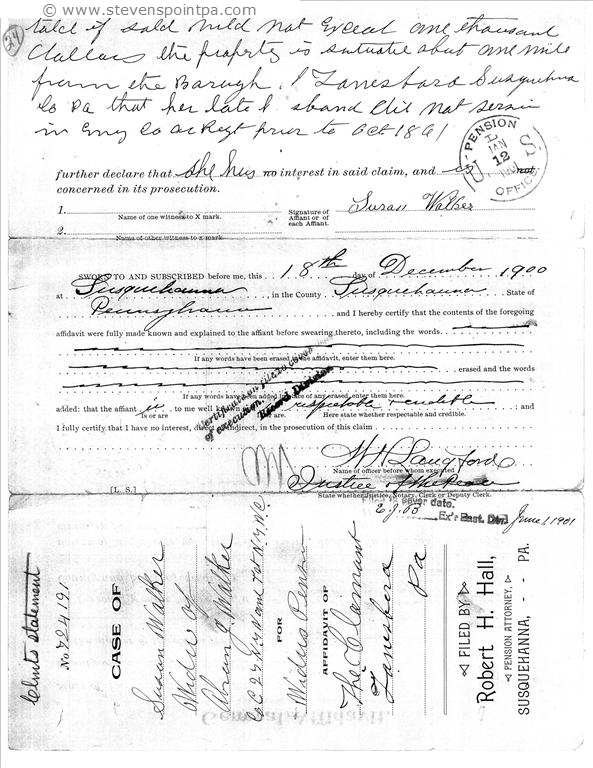 © www.stevenspointpa.com
24
told if sold would not Exceed one thousand
dollars the property is situate about one mile
from the Borough of Lanesboro Susquehna
Co Pa that her late husband did not serve
in Eny Co or Regt prior to Oct 1861
further declare that she has no interest in said claim, and is not
concerned in its prosecution.
U.S. PENSION OFFICE
JAN
12
1901
1.
Name of one witness to X mark.
Signature of
Affiant or of
each Affiant.
Susan Walker
2.
Name of other witness to x mark.
SWORN TO AND SUBSCRIBED before me, this 18th day of December 1900
at Susquehanna, in the County Susquehanna State of
Pennsylvania and I hereby certify that the contents of the foregoing
affidavit were fully made known and explained to the affiant before swearing thereto, including the words
If any words have been erased in the affidavit, enter them here.
erased and the words
If any words have been added in place of any erased, enter them here.
added: that the affiant is to me well known respectable & credible and
Is or are Here state whether respectable and credible.
I fully certify that I have no interest, direct or indirect, in the prosecution of this claim
Certificate on file to cover date
of execution. Record Division
Langford
Name of officer before whom executed.
Justice of the Peace
[L. S.]
State whether Justice, Notary, Clerk or Deputy Clerk.
cover date.
Ex'r East. Div. June 1 1901
Clmts statement
No 724191
CASE OF
Susan Walker
Widow of
Abram J. Walker
FOR
Widows Pension
AFFIDAVIT OF
The Claimant
Lanesboro
Pa
FILED BY
Robert H. Hall,
PENSION ATTORNEY.
SUSQUEHANNA, - - PA.
General Affidavit.